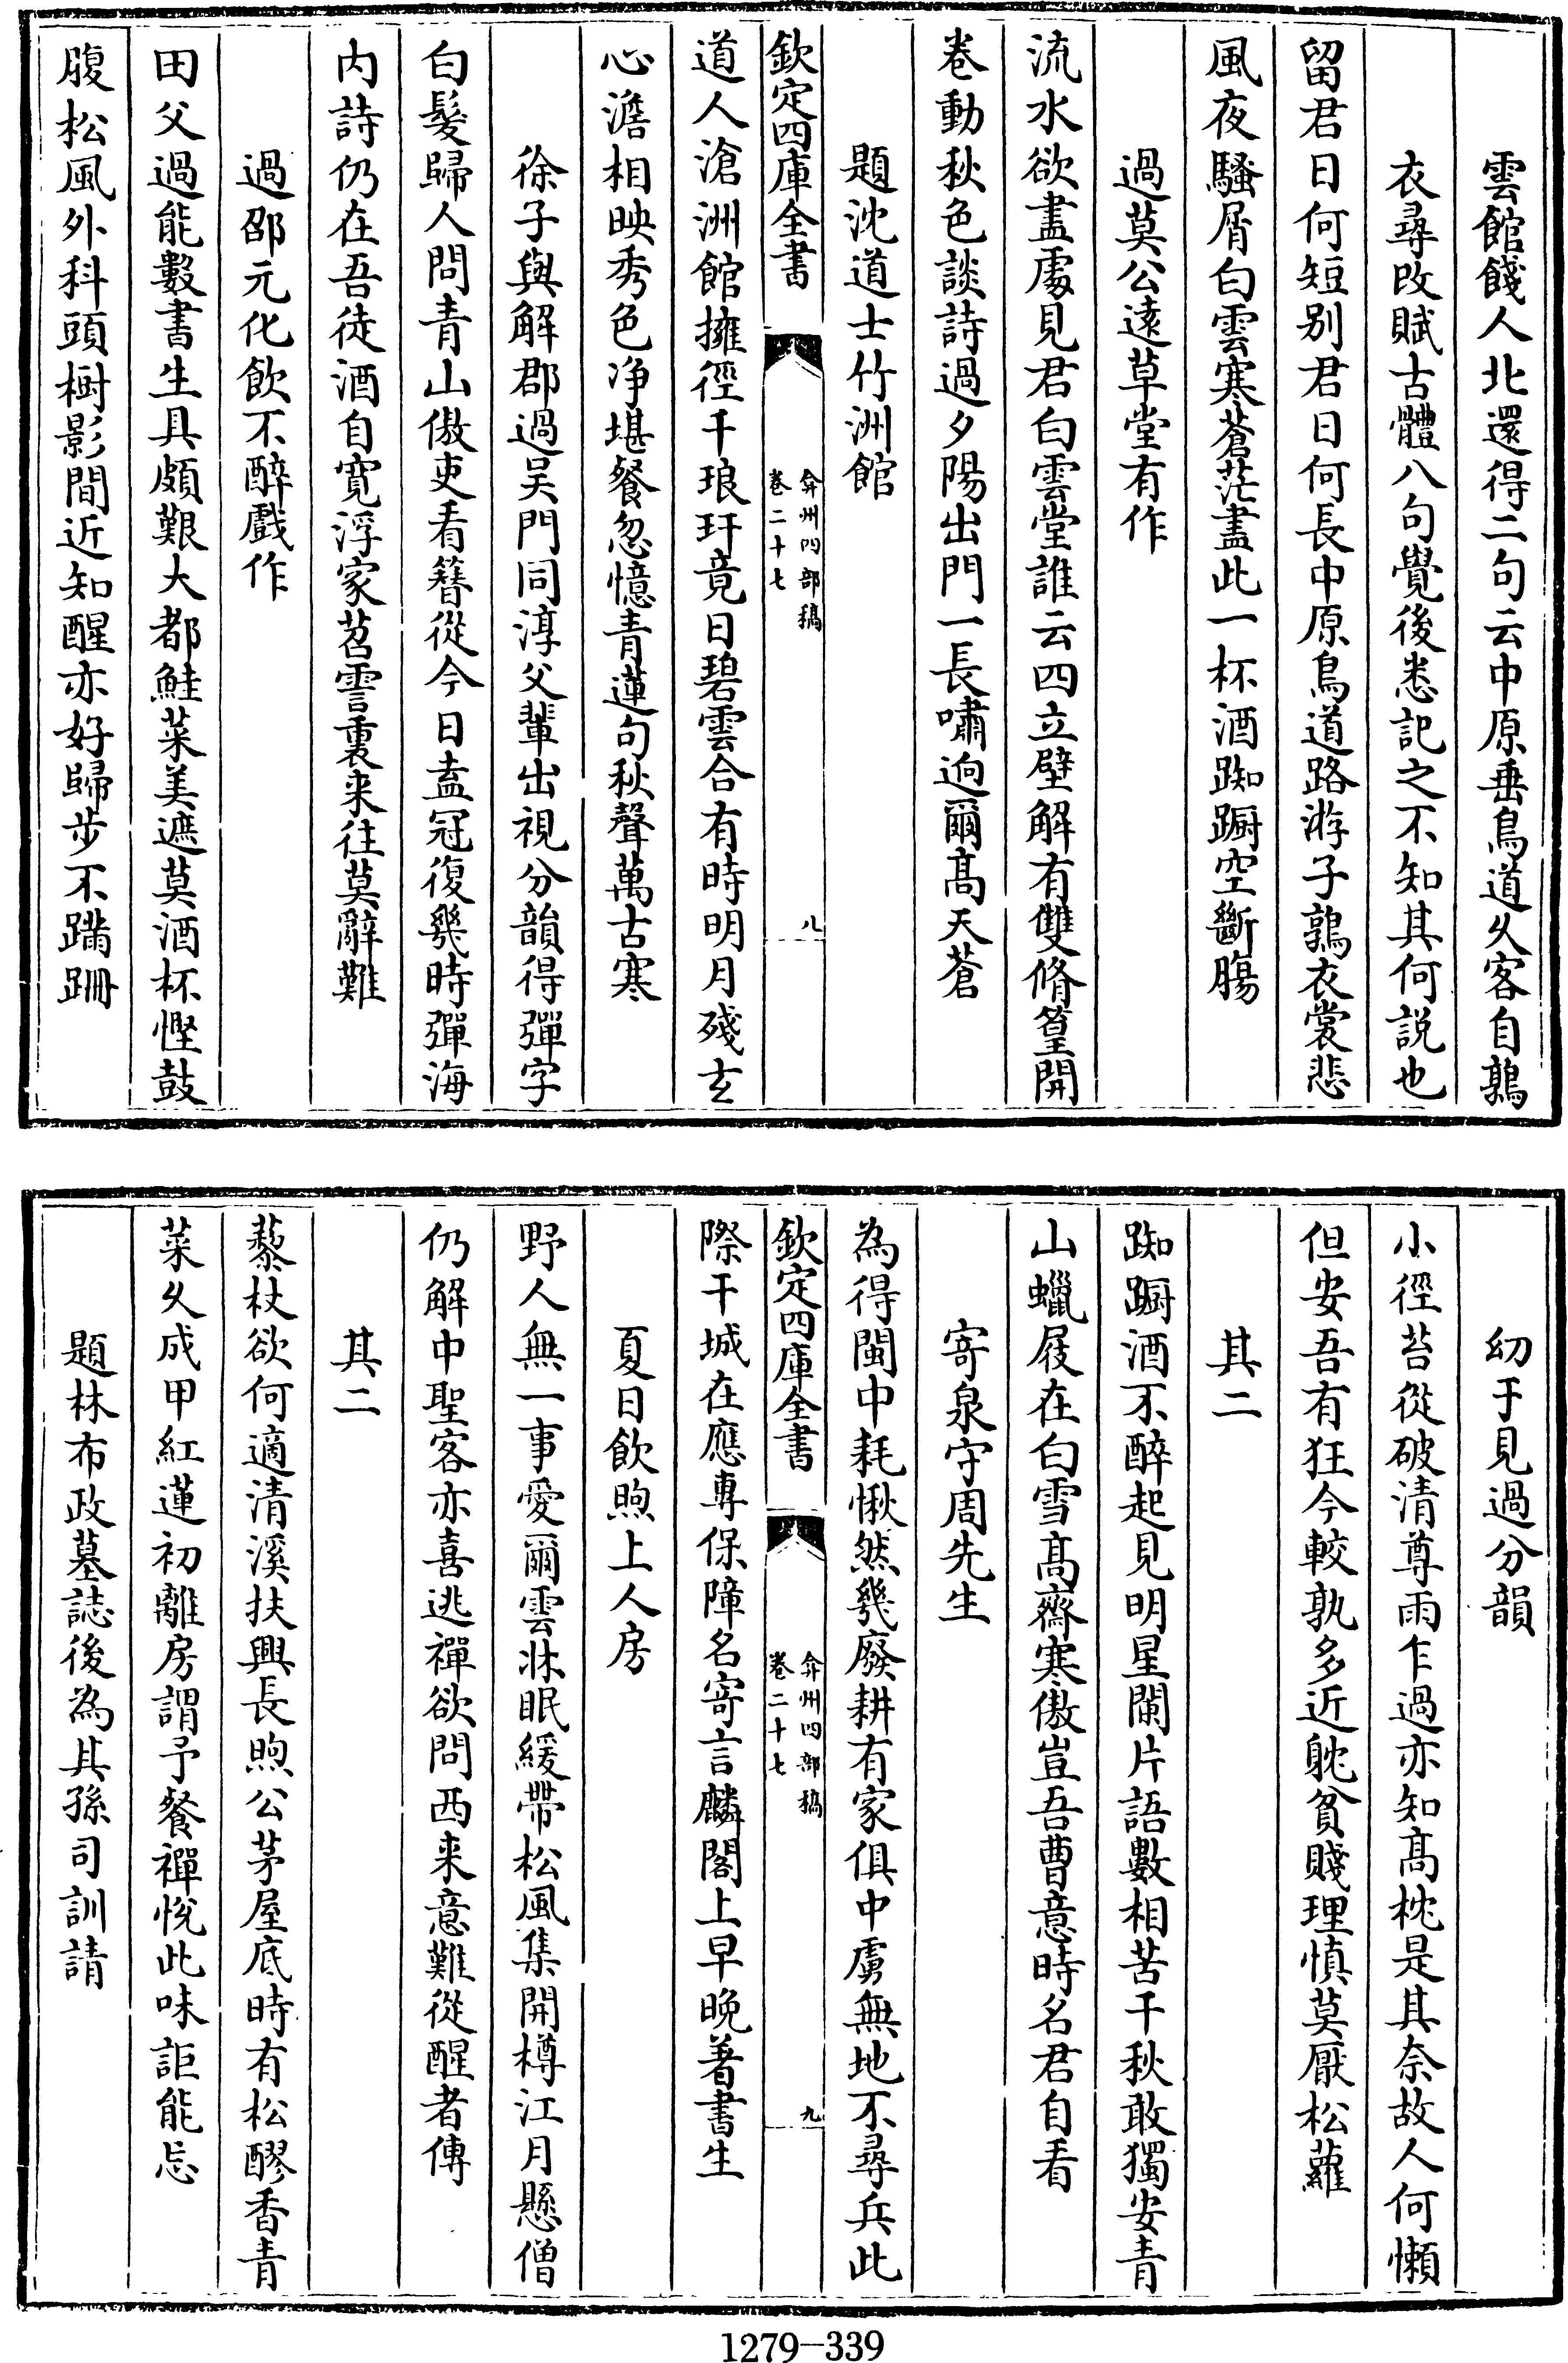 雲館餞人北還得二句云中原垂鳥道久客自鶉
衣尋改賦古體八句覺後悉記之不知其何説也
留君日何短别君日何長中原鳥道路游子鶉衣裳悲
風夜騷屑白雲寒蒼茫盡此一杯酒踟蹰空斷膓
過莫公遠草堂有作
流水欲盡處見君白雲堂誰云四立壁解有雙脩篁開
卷動秋色談詩過夕陽出門一長嘯逈爾髙天蒼
題沈道士竹洲館
欽定四庫全書
弇州四部稿
卷二十七
八
道人滄洲館擁徑千琅玕竟日碧雲合有時明月殘玄
心澹相映秀色净堪餐忽憶青蓮句秋聲萬古寒
徐子與解郡過吴門同淳父輩出視分韻得彈字
白髮歸人問青山傲吏看簪從今日盍冠復幾時彈海
内詩仍在吾徒酒自寛浮家苕霅裏来往莫辭難
過邵元化飲不醉戲作
田父過能數書生具頗艱大都鮭菜美遮莫酒杯慳鼓
腹松風外科頭樹影間近知醒亦好歸步不蹣跚
幼于見過分韻
小徑苔從破清尊雨乍過亦知髙枕是其奈故人何懶
但安吾有狂今較孰多近躭貧賤理慎莫厭松蘿
其二
踟蹰酒不醉起見明星闌片語數相苦千秋敢獨安青
山蠟屐在白雪髙齋寒傲豈吾曹意時名君自看
寄泉守周先生
為得閩中耗愀然幾廢耕有家俱中虜無地不尋兵此
欽定四庫全書
弇州四部稿
卷二十七
九
際干城在應專保障名寄言麟閣上早晚著書生
夏日飲煦上人房
野人無一事愛爾雲牀眠緩帶松風集開樽江月懸僧
仍解中聖客亦喜逃禪欲問西来意難從醒者傳
其二
藜杖欲何適清溪扶興長煦公茅屋底時有松醪香青
菜久成甲紅蓮初離房謂予餐禪悅此味詎能忘
題林布政墓誌後為其孫司訓請
1279-339